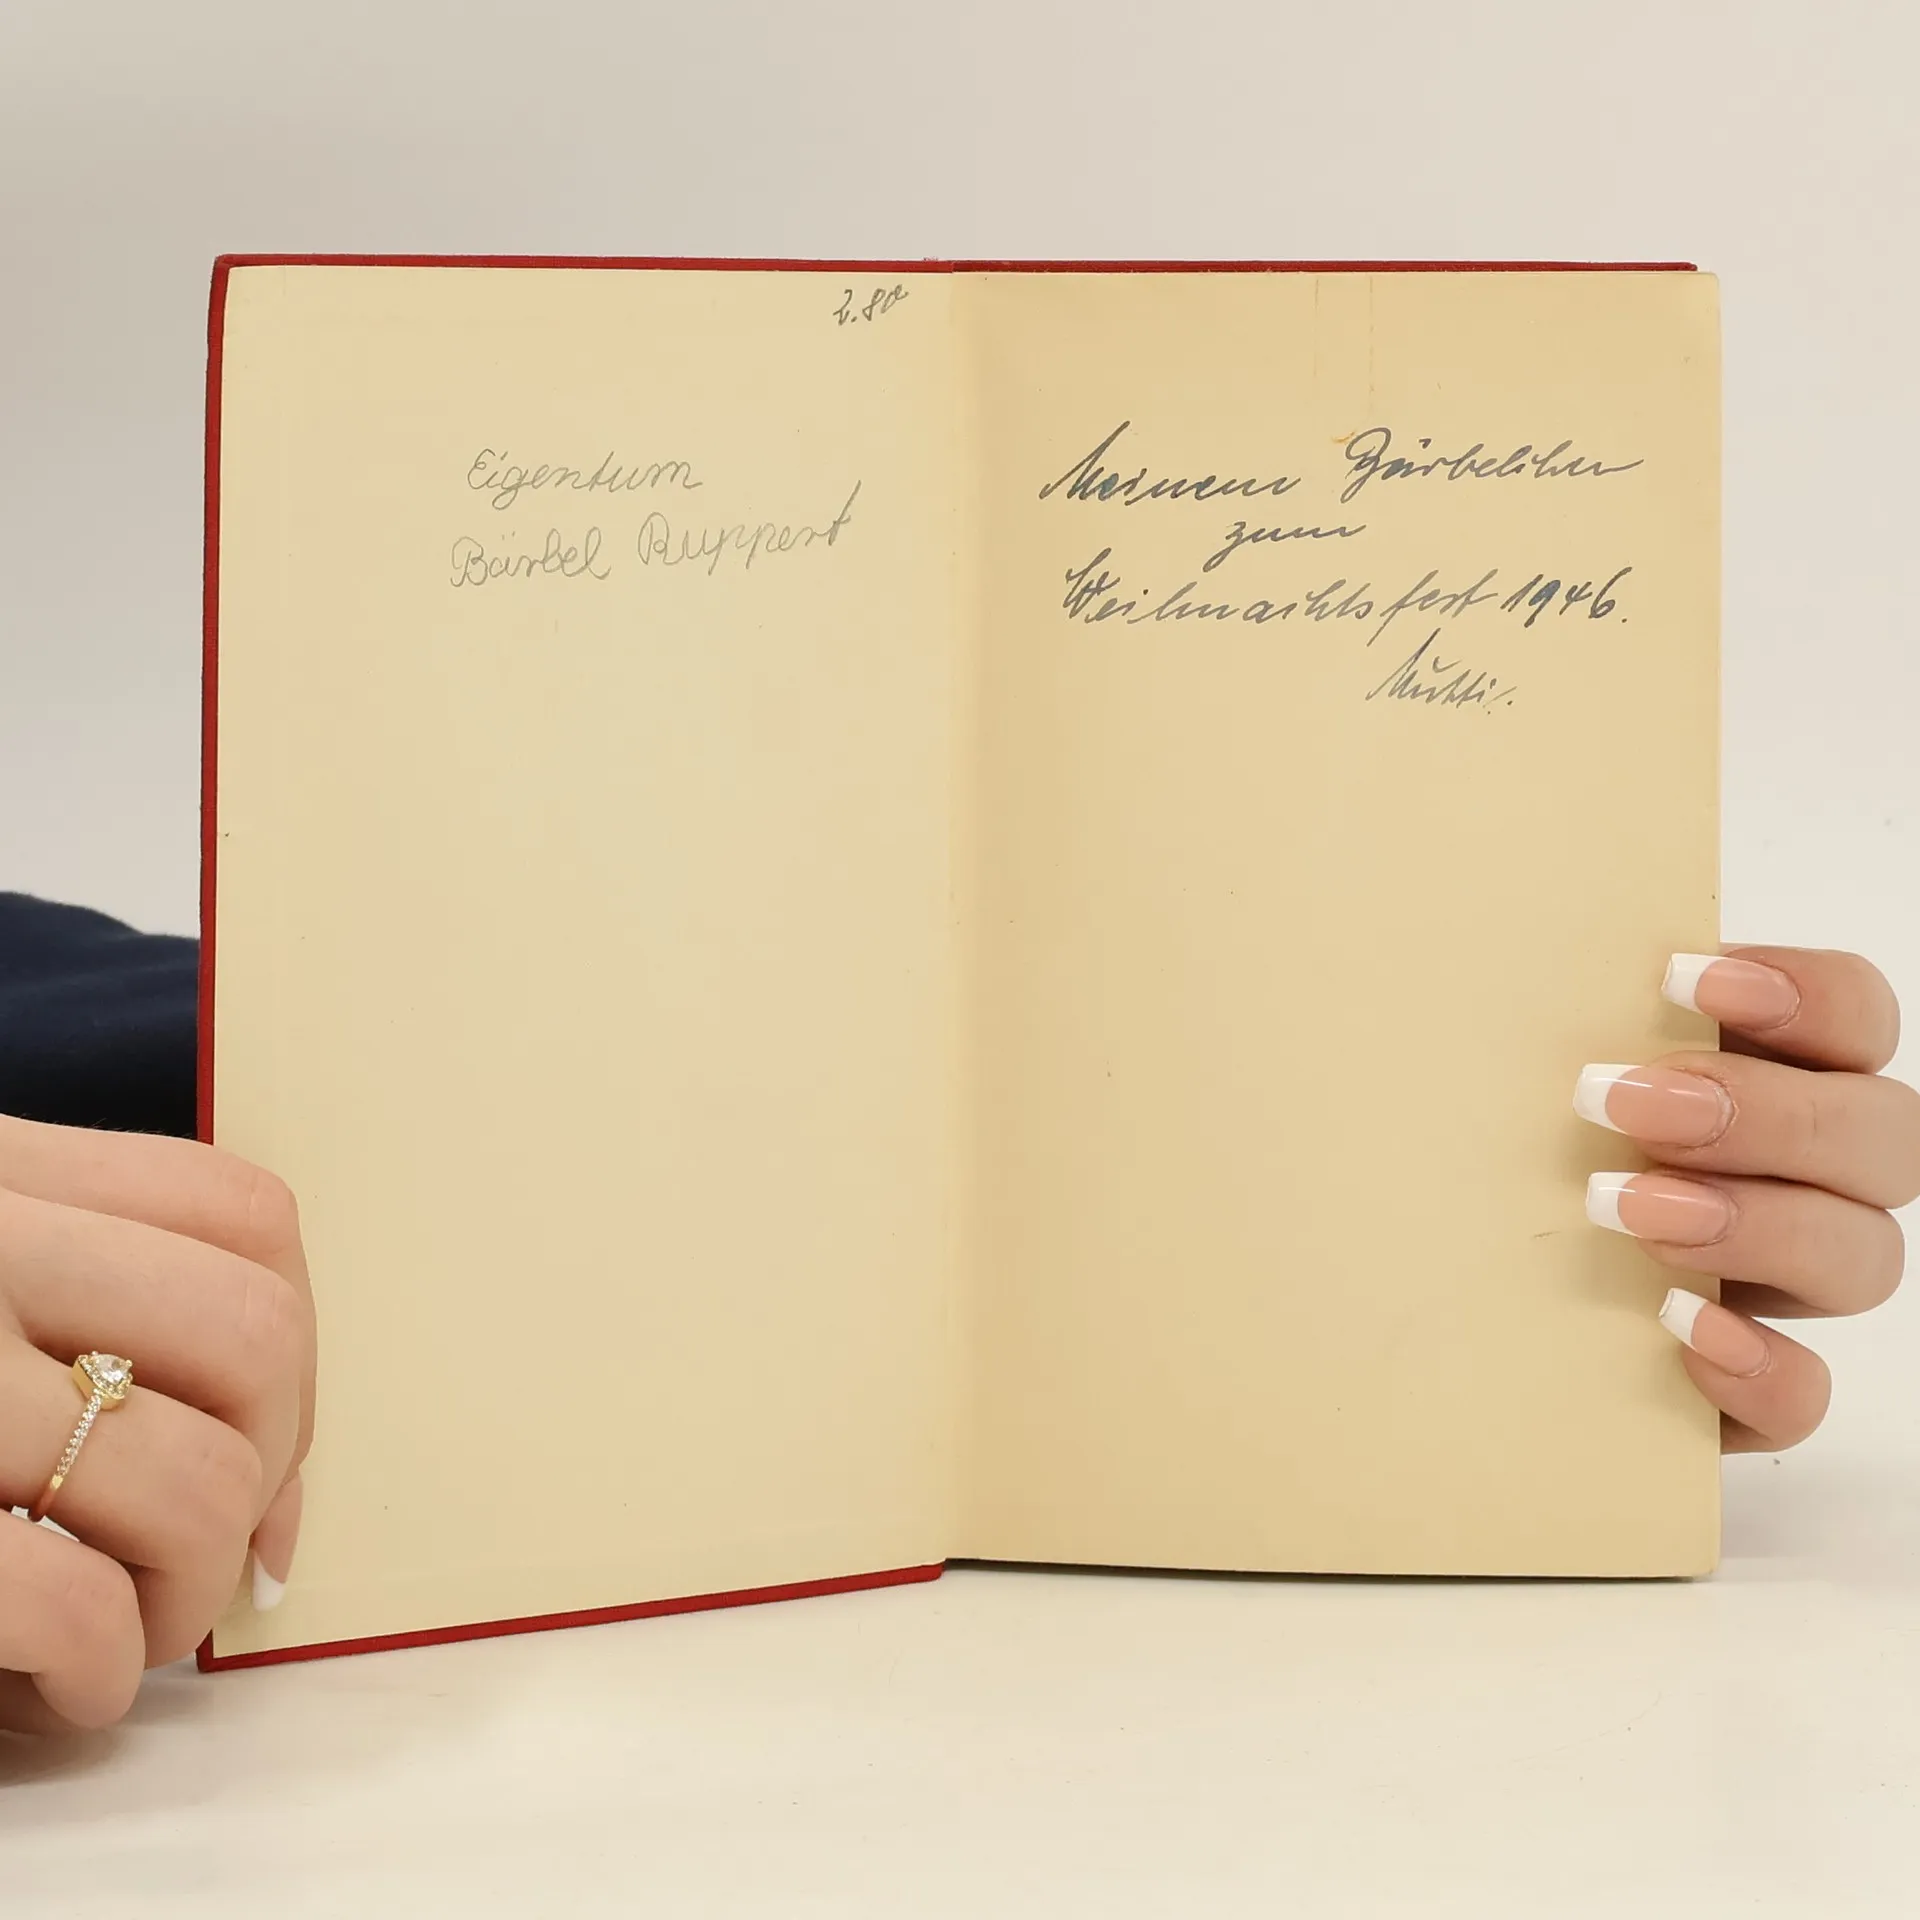 2.80
Eigentum
Bärbel Ruppert
Meinem Bärbelchen
zum
Weihnachtsfest 1946.
Mutti.